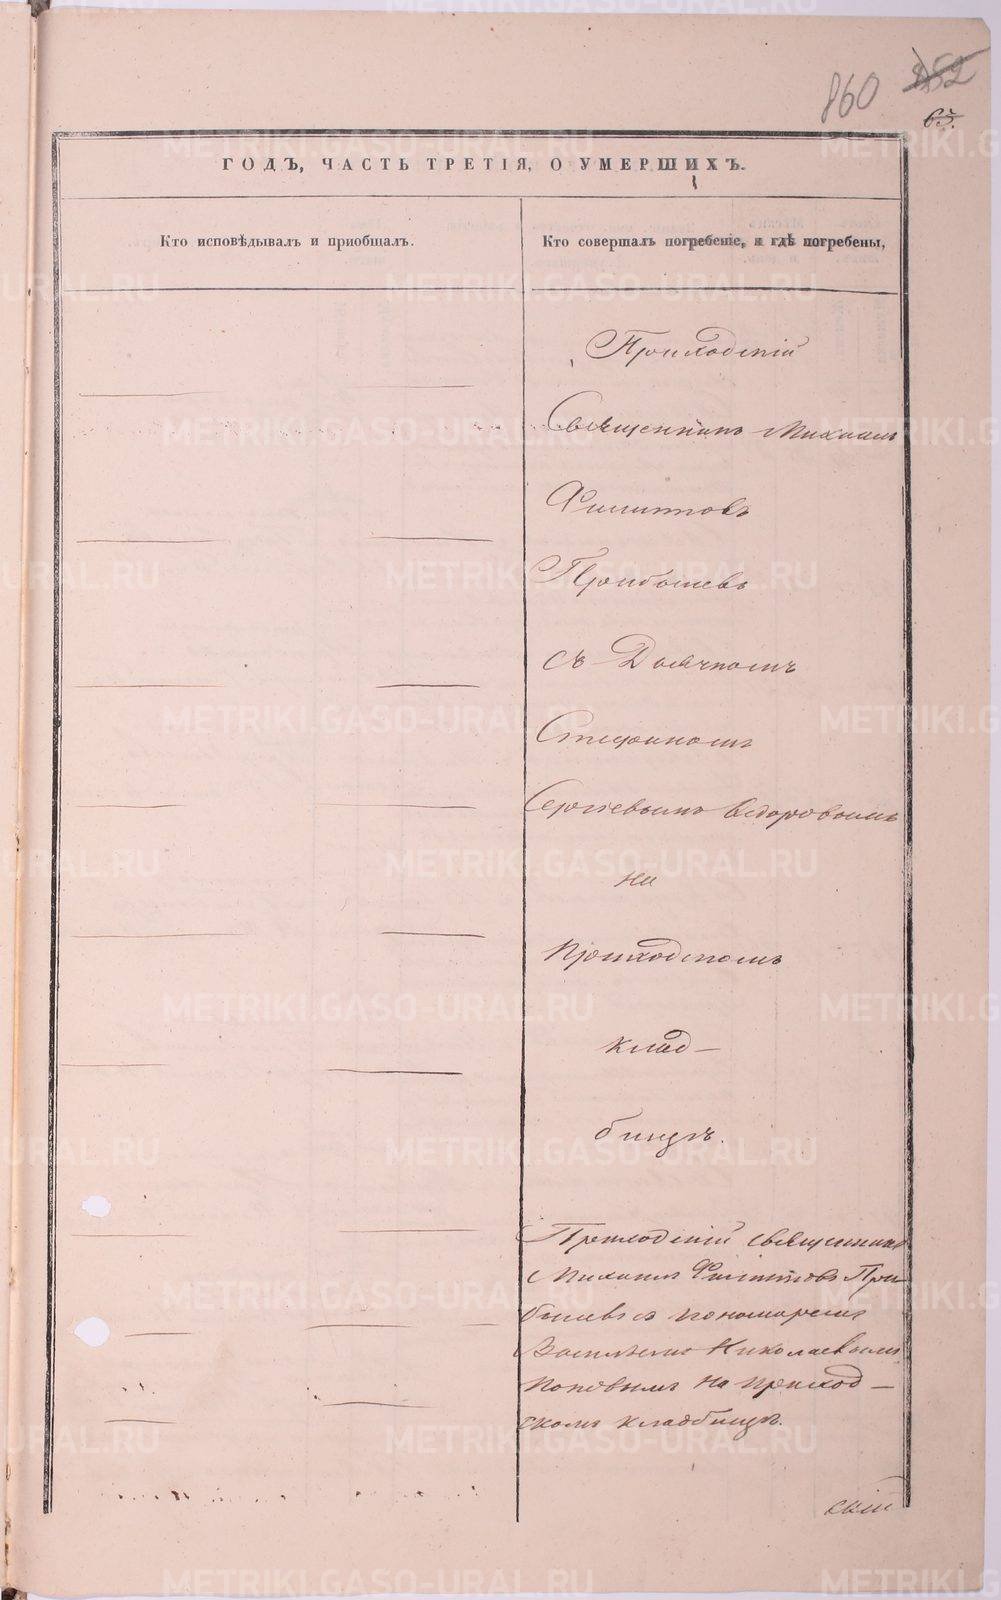 860 852
65.
ГОДЪ, ЧАСТЬ ТРЕТІЯ, О УМЕРШИХЪ.
Кто исповѣдывалъ и пріобщалъ.
Кто совершалъ погребеніе, и гдѣ погребены,
Приходскій
Священникъ Михаилъ
Филипповъ
Прибылевъ
съ Дьячкомъ
Стефаномъ
Сергіевымъ Ѳедоровымъ
на
Приходскомъ
клад-
бищѣ.
Приходскій священникъ
Михаилъ Филипповъ При-
былевъ съ пономаремъ
Васильемъ Николаевымъ
Поповымъ на приход-
скомъ кладбищѣ.
скій
METRIKI.GASO-URAL.RU